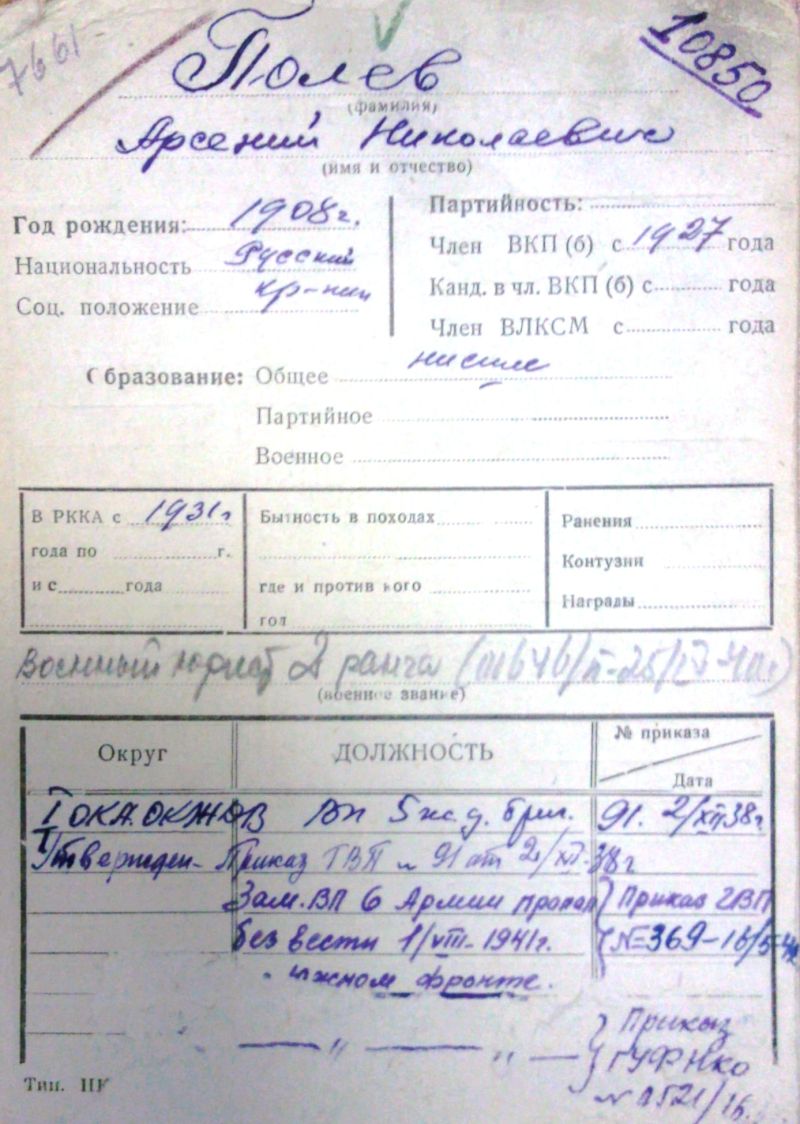 7661
10850
Полев
(фамилия)
Арсений Николаевич
(имя и отчество)
Год рождения: 1908г.
Национальность Русский
Соц. положение кр-нин
Партийность:
Член ВКП (б) с 1927 года
Канд. в чл. ВКП (б) с года
Член ВЛКСМ с года
Образование: Общее низшее
Партийное
Военное
В РККА с 1931г
года по г.
и с года
Бытность в походах
где и против кого
год
Ранения
Контузии
Награды
Военный юрист 2 ранга
(военное звание)
Округ ДОЛЖНОСТЬ № приказа
Дата
I ОКА. ОКЖДВ ВП 5 ж.д. бриг. 91. 2/XII 38г
Утвержден - Приказ ГВП № 91 от 2/XII-38г
Зам. ВП 6 Армии пропал Приказ ГВП
без вести 1/VIII-1941г. №369-16/5-
южном фронте.
— " — " — Приказ
ГУФНКО
№
Тип. НК